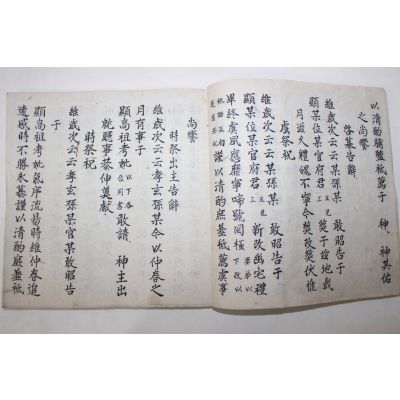 以清酌脯醢祗薦于　神　神其佑
之尚饗
啓墓告辭
維歲次云云某孫某　敢昭告于
顯某位某官府君　葬于玆地歲
月滋久體魄不寧今
虞祭祝
維歲次云云某孫某　敢昭告于
顯某位某官府君　新改幽宅禮
畢終虞夙夜靡寧啼號罔極
謹以清酌庶羞祗薦虞事
尚饗
時祭出主告辭
維歲次云云孝玄孫某今以仲春之
月有事于
顯高祖考妣以下各位列書敢請　神主出
就廳事恭伸奠獻
時祭祝
維歲次云云孝玄孫某官某敢昭告
于
顯高祖考妣氣序流易時維仲春追
感時不勝永慕謹以清酌庶羞祗